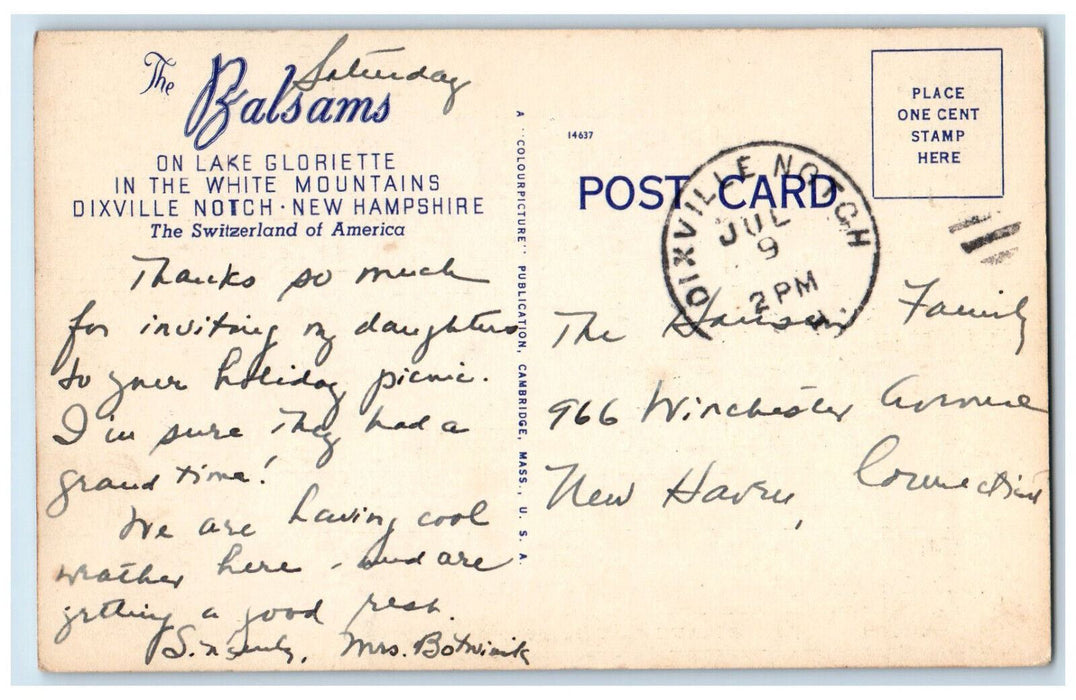 Saturday
The Balsams
ON LAKE GLORIETTE
IN THE WHITE MOUNTAINS
DIXVILLE NOTCH · NEW HAMPSHIRE
The Switzerland of America
Thanks so much
for inviting my daughters
to your holiday picnic.
I'm sure they had a
grand time!
We are having cool
weather here - and are
getting a good rest.
Sincerely, Mrs. Botwinik
A "COLOURPICTURE" PUBLICATION, CAMBRIDGE, MASS., U. S. A.
14637
POST CARD
PLACE
ONE CENT
STAMP
HERE
DIXVILLE NOTCH
JUL
9
2 PM
The Family
966 Winchester Avenue
New Haven, Connecticut